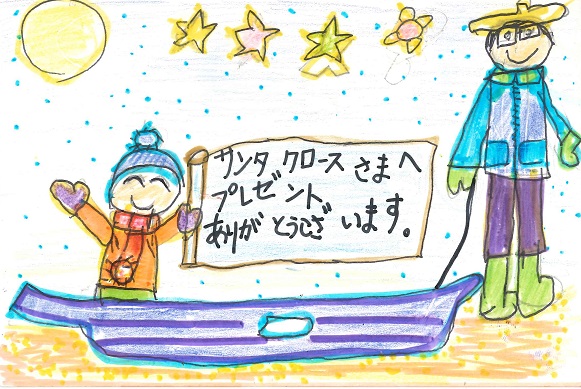 サンタクロースさまへ
プレゼント
ありがとうございます。